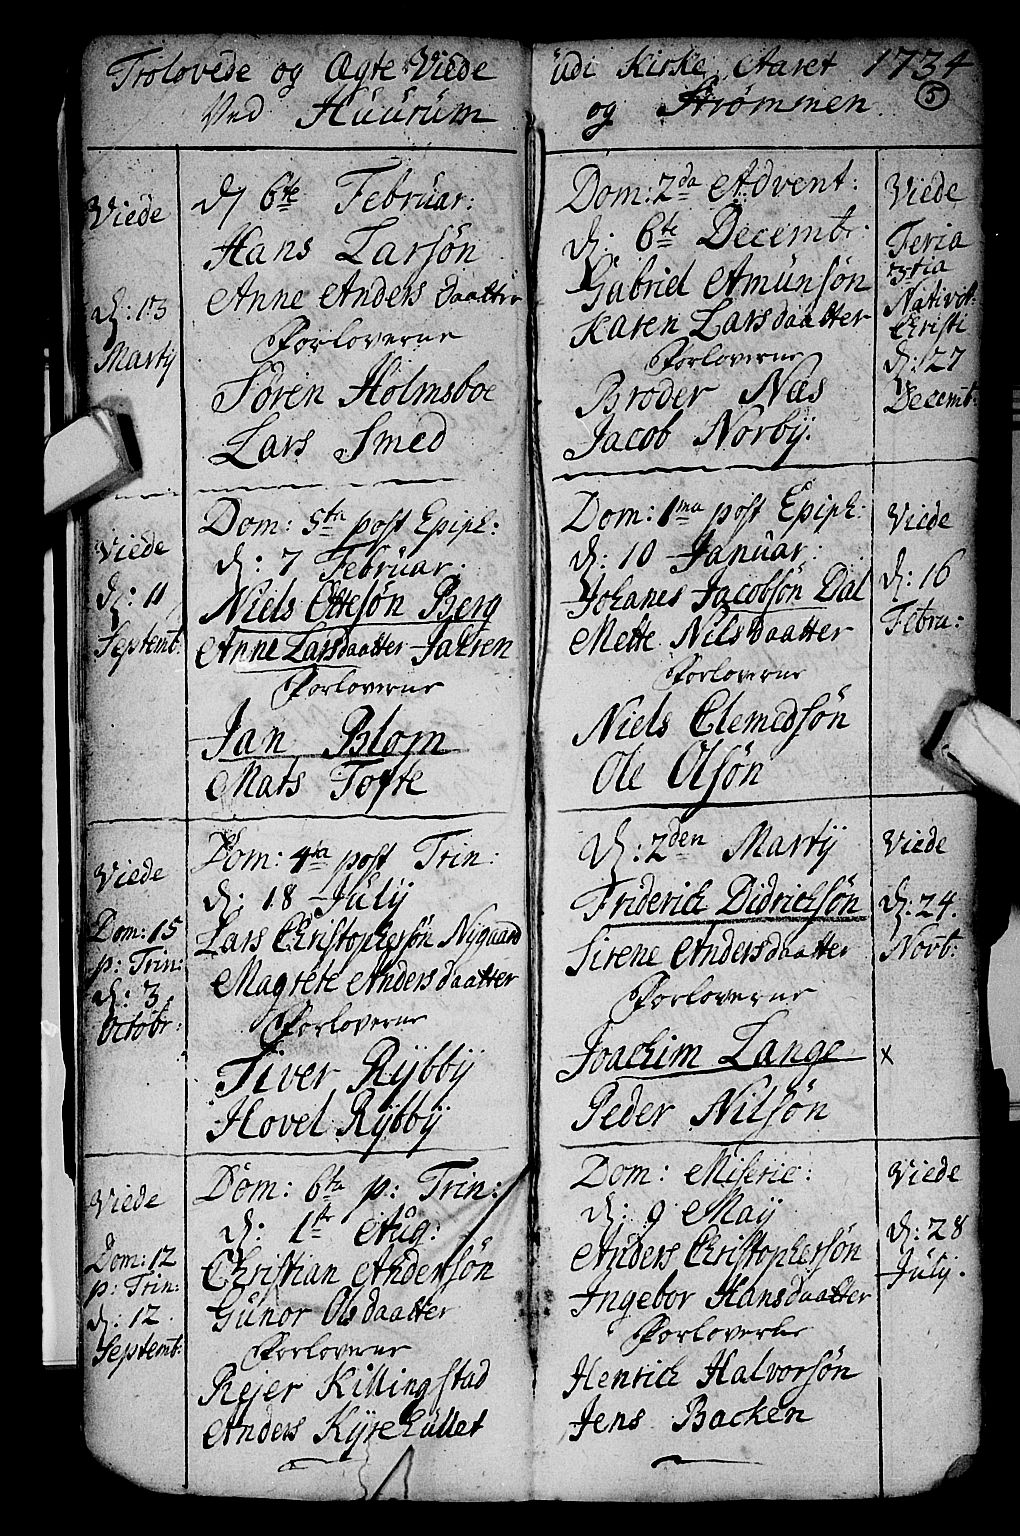 Trolovede og Ægte Viede
Ved Huurum
Viede
d: 13
Martij
d 6te Februar:
Hans Larsøn
Anne Anders daatter
Forloverne
Søren Holmsboe
Lars Smed
Viede
d: 11
Septemb:
Dom: 5ta post Epiph:
d: 7 Februar:
Niels Ottesøn Berg
Anne Larsdaatter Jahren
Forloverne
Jan Blom
Mats Tofte
Viede
Dom: 15
p: Trin:
d: 3
Octobr:
Dom: 4ta post Trin:
d: 18 Julij
Lars Christophersøn Nÿgaard
Magrete Andersdaatter
Forloverne
Siver Rÿbbÿ
Hovel Rÿbbÿ
Viede
Dom: 12
p: Trin:
d: 12
Septemb:
Dom: 6ta p: Trin:
d: 1ste Aug:
Christian Andersøn
Gunor Olsdaatter
Forloverne
Rejer Killingstad
Anders Kÿrehullet
udi Kirke Aaret 1734
5
og Strømmen
Dom: 2da Advent:
d: 6te Decembr:
Gabriel Amunsøn
Karen Larsdaatter
Forloverne
Broder Næs
Jacob Norbÿ.
Viede
Feria
3tia
Nativit:
Christi
d: 27
Decemb:
Dom: 1ma post Epiph:
d: 10 Januar:
Johanes Jacobsøn Dal
Mette Nilsdaatter
Forloverne
Niels Clemedsøn
Ole Olsøn
Viede
d: 16
Febru:
d: 2den Martij
Friderich Didrichsøn
Sirene Andersdaatter
Forloverne
Joachim Lange
Peder Nilsøn
Viede
d: 24.
Novb:
x
Dom: Miseric:
d: 9 Maÿ
Anders Christophersøn
Ingebor Hansdaatter
Forloverne
Henrich Halvorsøn
Jens Backen
Viede
d: 28
Julÿ.